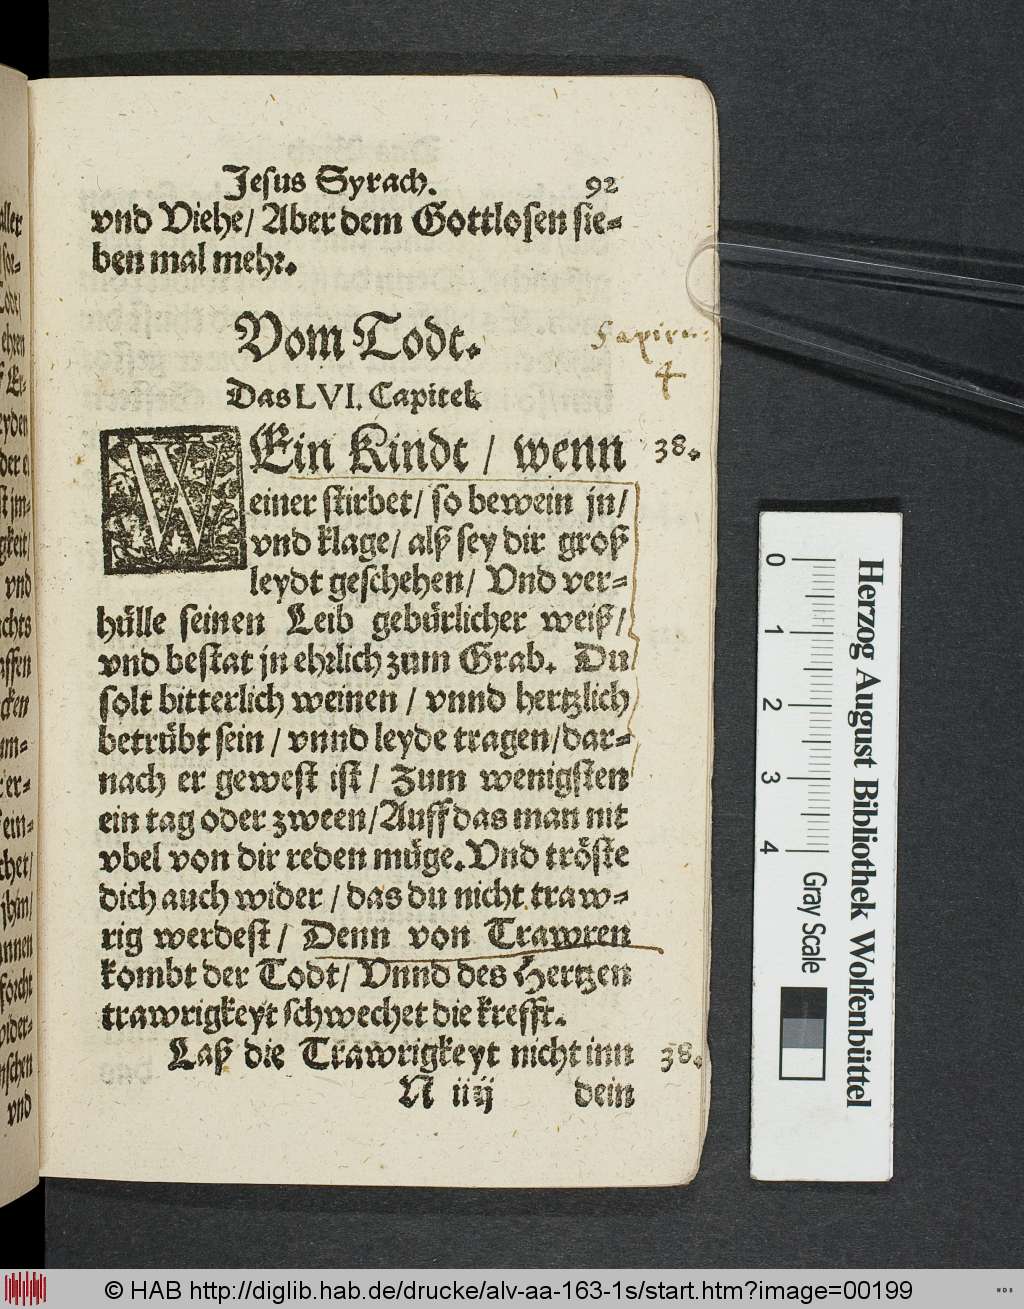 Jesus Syrach. 92
vnd Viehe/ Aber dem Gottlosen sie-
ben mal mehr.
Vom Todt.
Sapien:
4
Das LVI. Capitel.
MEin Kindt / wenn
38.
einer stirbet/ so bewein jn/
vnd klage/ alß sey dir groß
leydt geschehen/ Vnd ver-
hülle seinen Leib gebürlicher weiß/
vnd bestat jn ehrlich zum Grab. Du
solt bitterlich weinen / vnnd hertzlich
betrübt sein / vnnd leyde tragen/dar-
nach er gewest ist / Zum wenigsten
ein tag oder zween/Auff das man nit
vbel von dir reden müge. Vnd tröste
dich auch wider / das du nicht traw-
rig werdest/ Denn von Trawren
kombt der Todt/ Vnnd des Hertzen
trawrigkeyt schwechet die krefft.
Laß die Trawrigkeyt nicht inn
38.
N iiij dein
aller
ehren
vnd
vnd
0
1
2
3
4
Gray Scale
Herzog August Bibliothek Wolfenbüttel
© HAB http://diglib.hab.de/drucke/alv-aa-163-1s/start.htm?image=00199